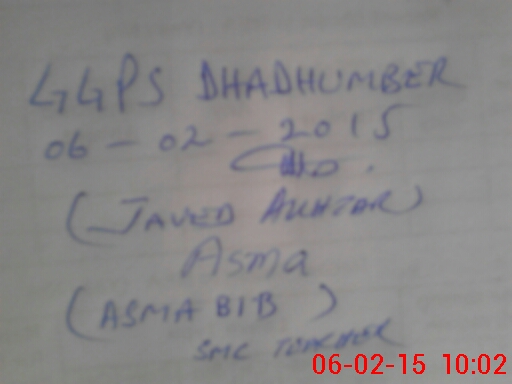 GGPS DHADHUMBER
06-02-2015
(JAVED AKHTAR)
Asma
(ASMA BIB)
SMC TEACHER
06-02-15 10:02